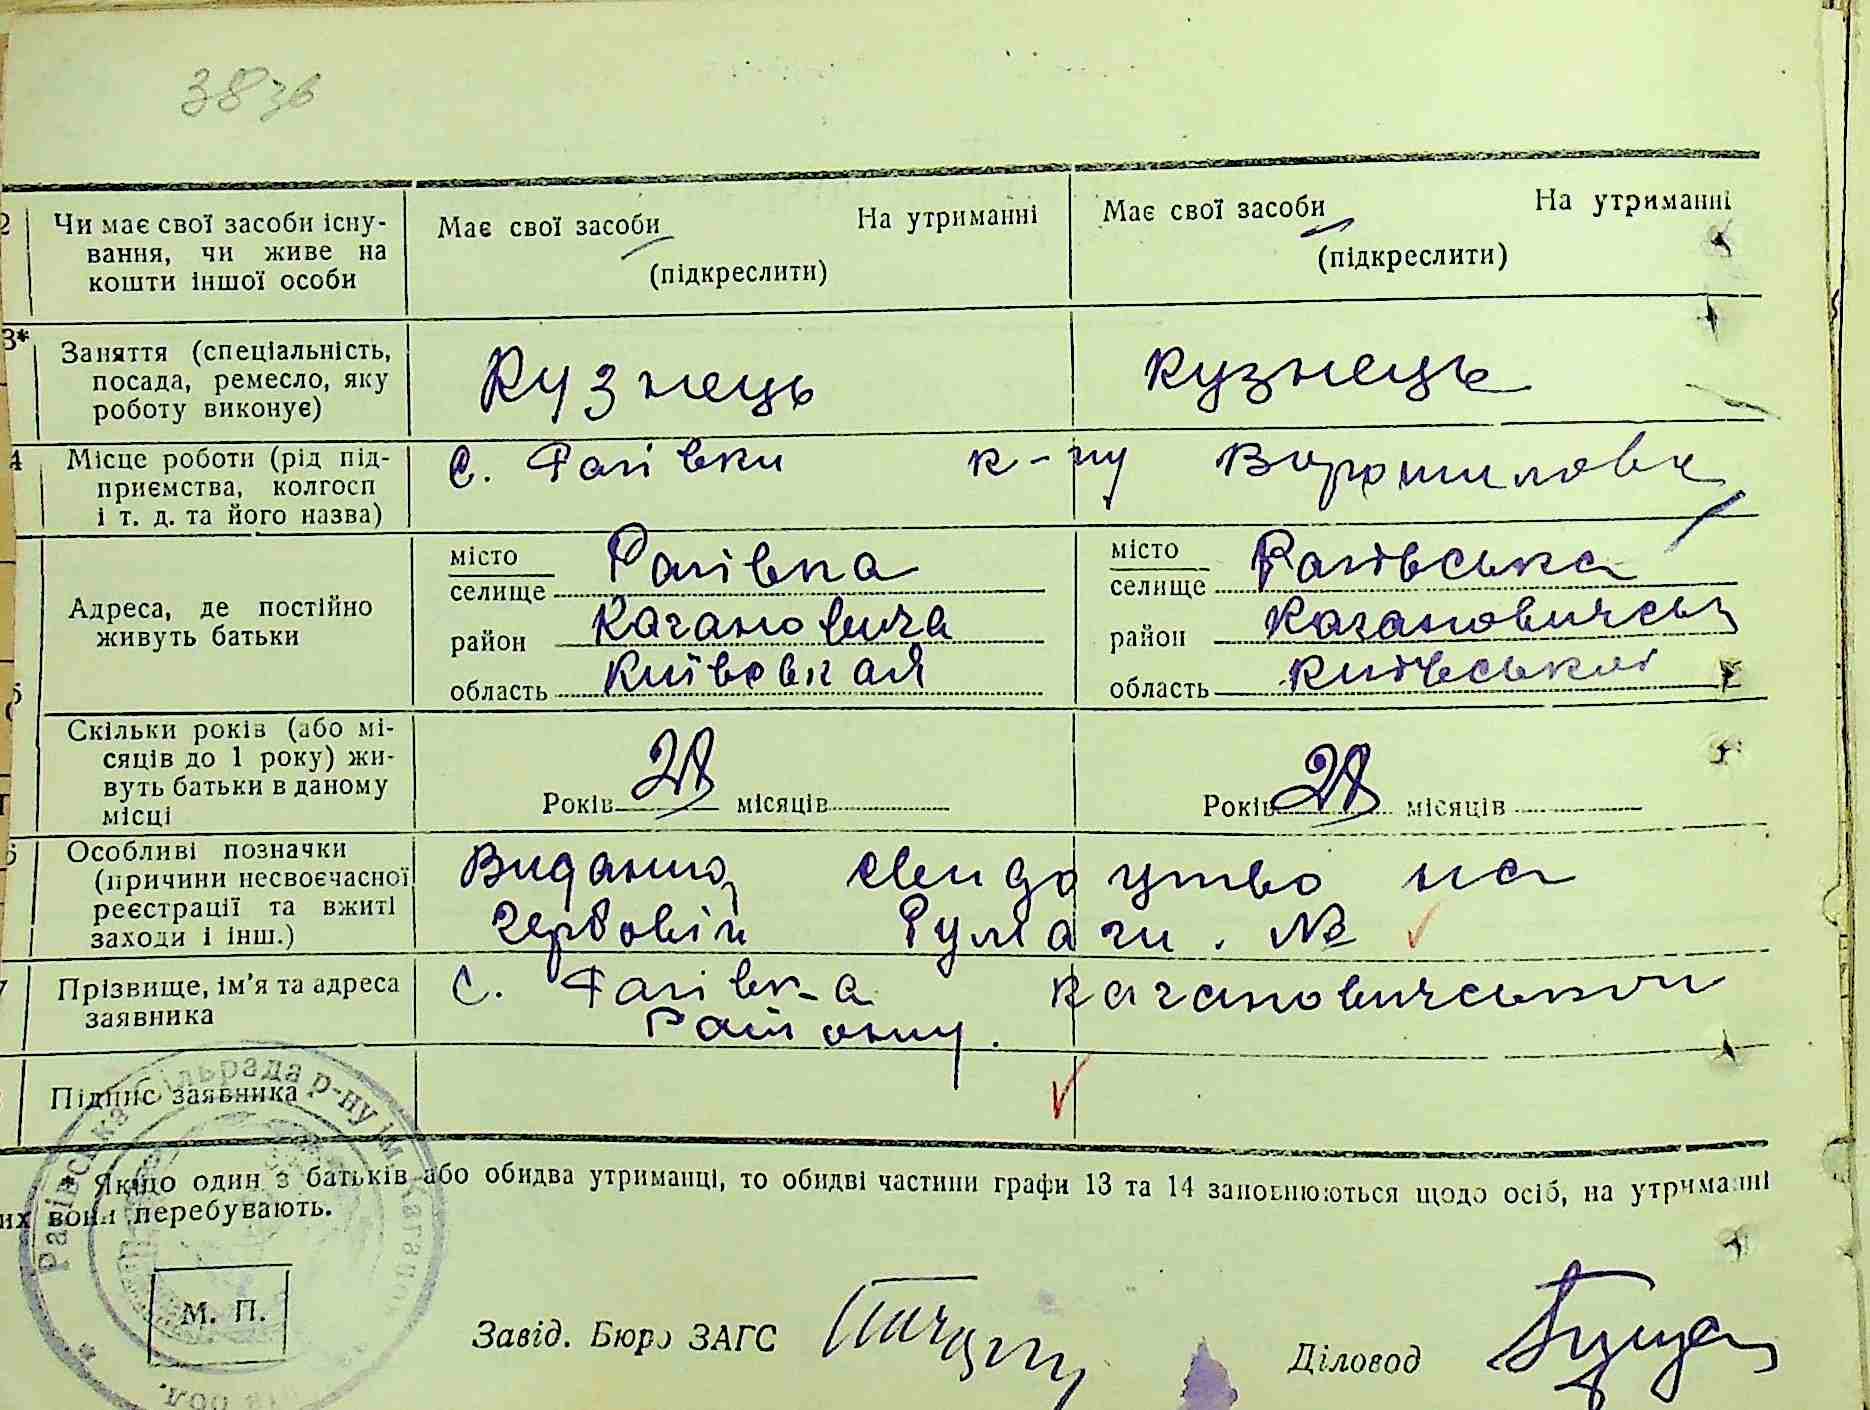 38зв
2 Чи має свої засоби існу-
вання, чи живе на
кошти іншої особи
Має свої засоби На утриманні
(підкреслити)
Має свої засоби На утриманні
(підкреслити)
3* Заняття (спеціальність,
посада, ремесло, яку
роботу виконує)
Кузнець
Кузнець
4 Місце роботи (рід під-
приємства, колгосп
і т. д. та його назва)
С. Рагівки к-пу Ворошилова
Адреса, де постійно
живуть батьки
місто
селище Рагівка
район Кагановича
область Киівская
місто
селище Рагівська
район Кагановичськ
область Киівськоі
Скільки років (або мі-
сяців до 1 року) жи-
вуть батьки в даному
місці
Років 28 місяців
Років 28 місяців
Особливі позначки
(причини несвоєчасної
реєстрації та вжиті
заходи і інш.)
на
№
7 Прізвище, ім'я та адреса
заявника
С. Рагівка Кагановичськои
Району.
Підпис заявника
* Якщо один з батьків або обидва утриманці, то обидві частини графи 13 та 14 заповнюються щодо осіб, на утриманні
их вони перебувають.
Рагівська сільрада р-ну ім. Каганов
М. П.
Завід. Бюро ЗАГС
Діловод